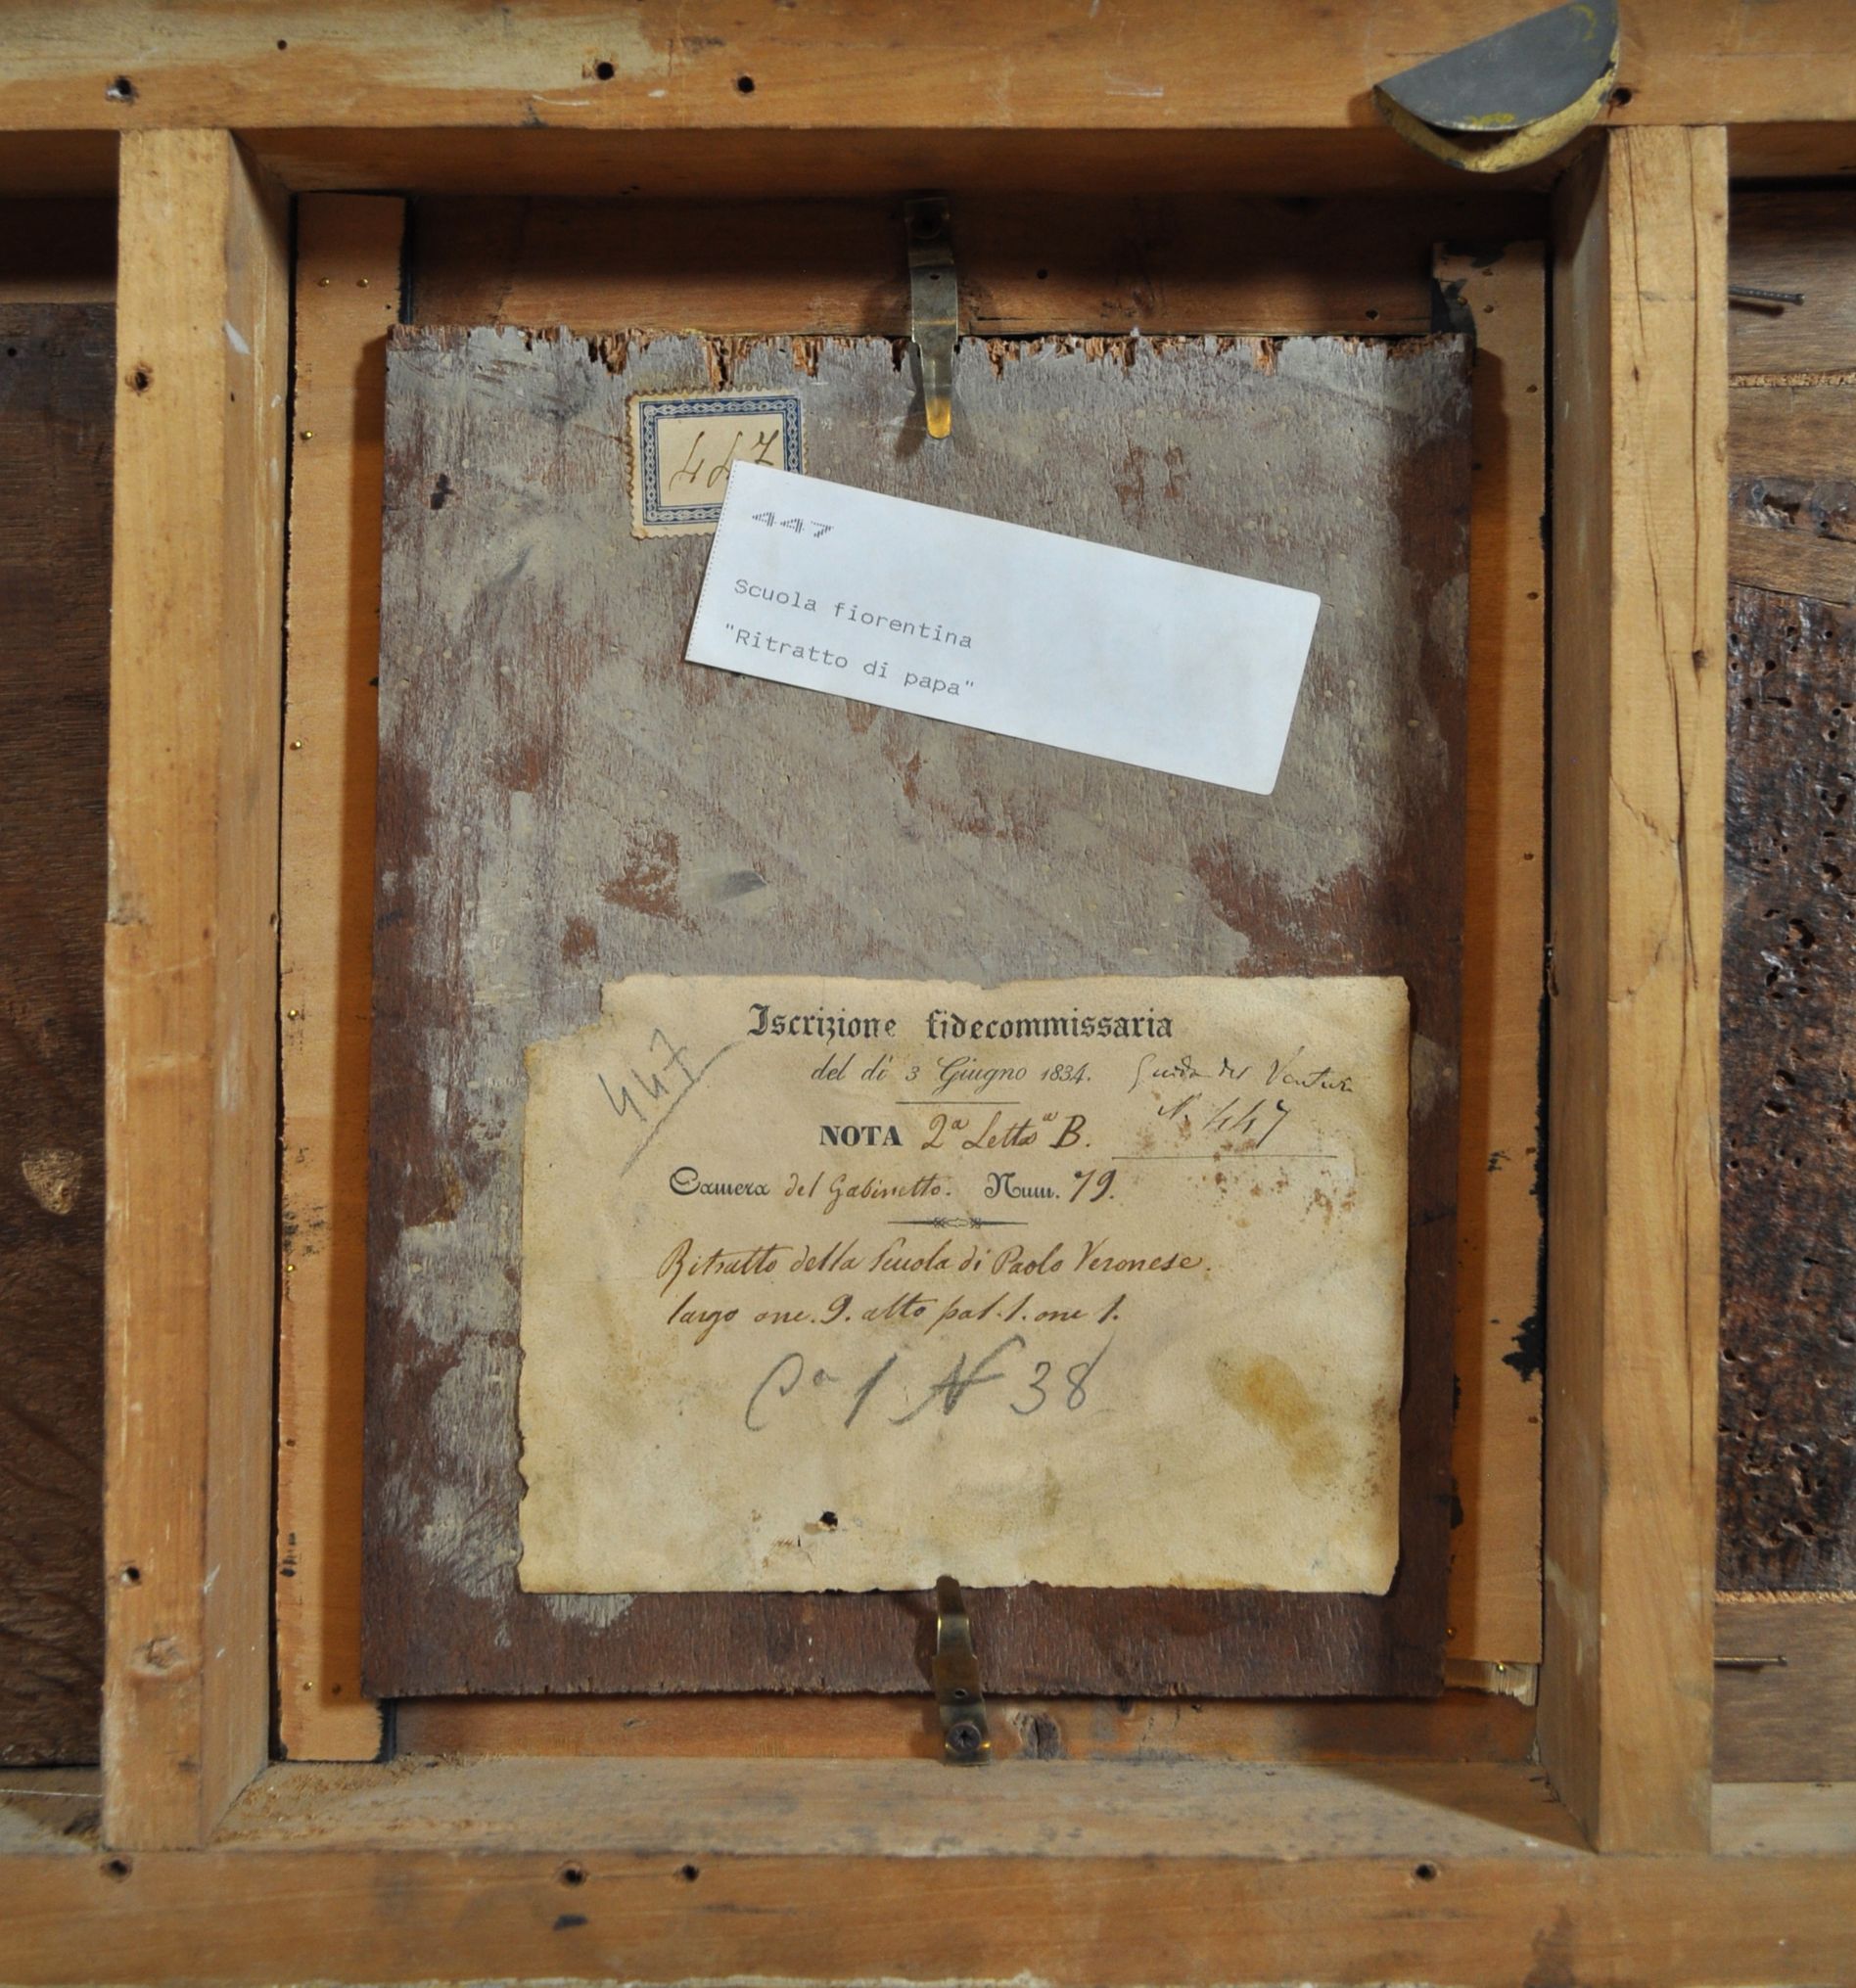 447
447
Scuola fiorentina
"Ritratto di papa"
Iscrizione fidecommissaria
447
del dì 3 Giugno 1834.
Guida del Venturi
N. 447
NOTA 2ª Lettª B.
Camera del Gabinetto. Num. 79.
Ritratto della Scuola di Paolo Veronese.
largo onc. 9. alto pal. 1. onc 1.
1 N 38